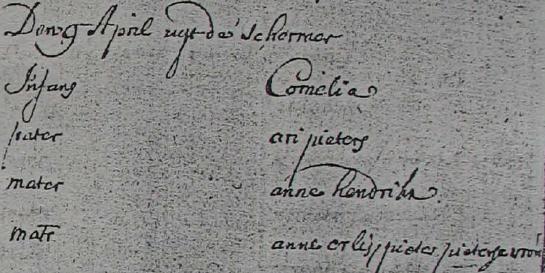 Den 9 April uyt de Schermer
Infans Cornelia
pater ari pieters
mater anne hendrikx
matr anne erlis pieter pieters vrou